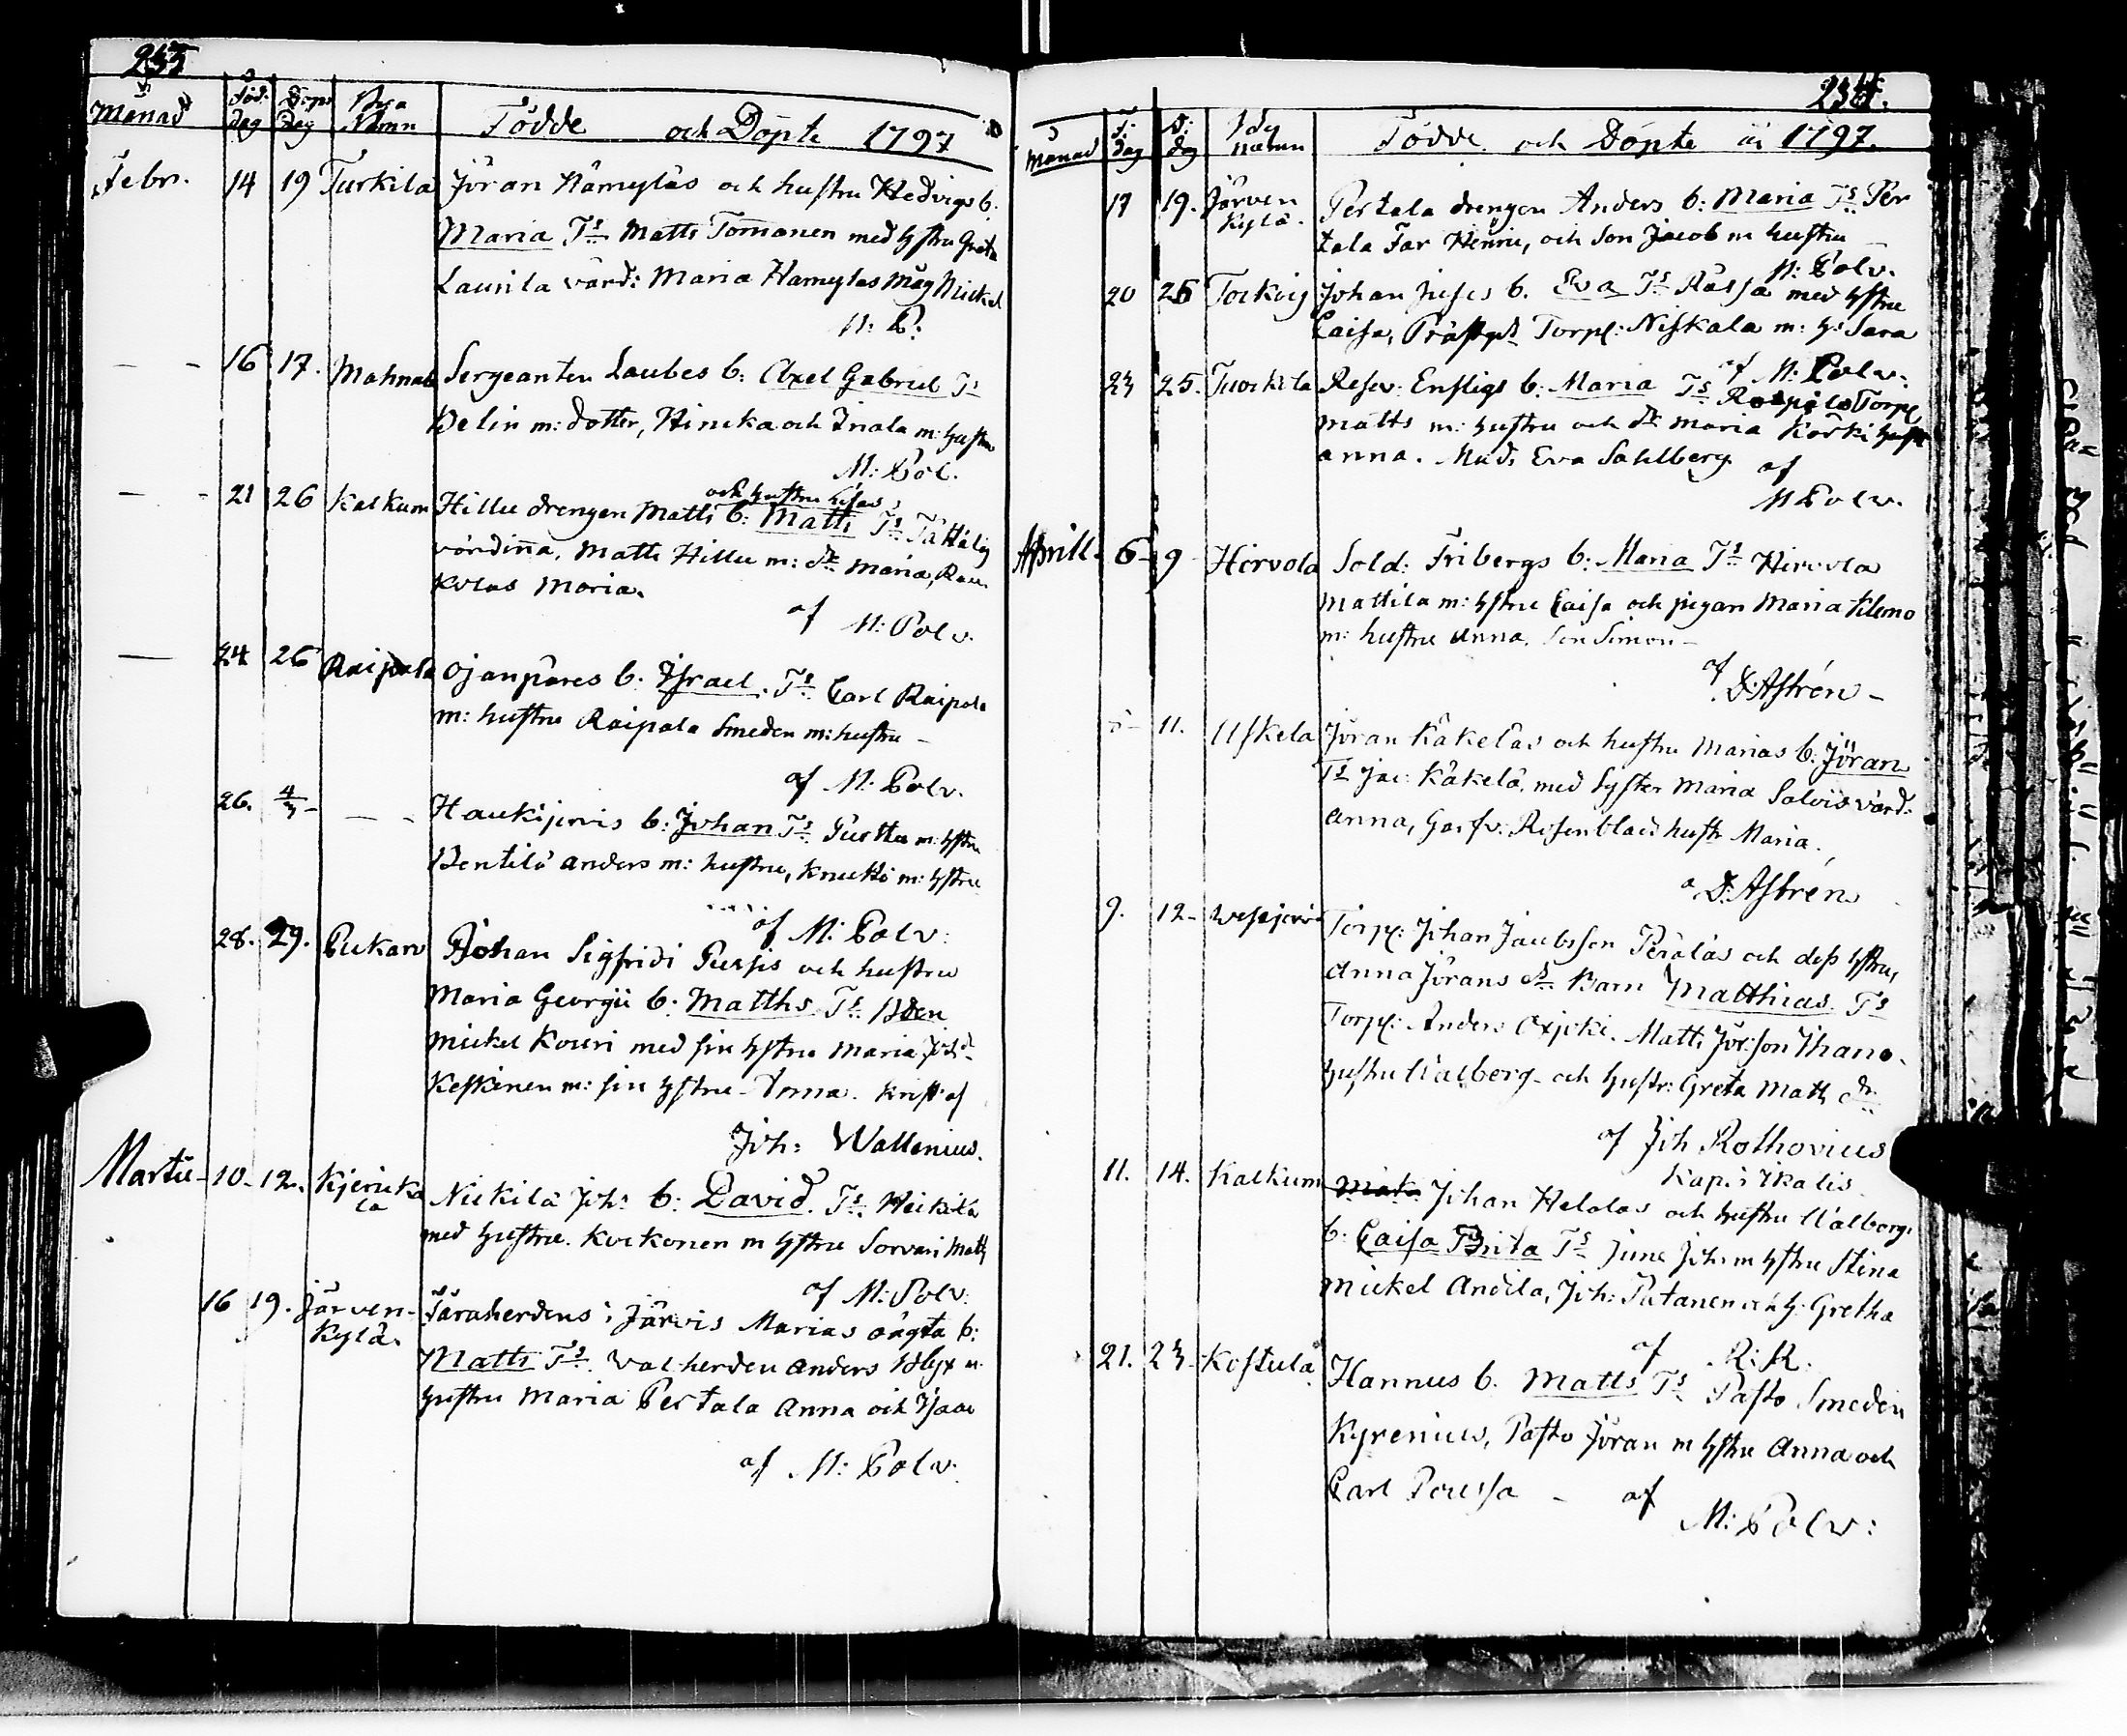 235
Månad Föd. dag Döps dag Bya Namn Födde och Döpte 1797
Febr. 14 19 Turkila Jöran Hämyläs och hustru Hedvigs b.
Maria Ts Matts Tomanen med hstru Greta
Launila värd: Maria Hamylas Måg Mickel
M: P:
— - 16 17. Mahnala Sergeanten Laubes b: Axel Gabriel Ts
Belin m: dotter, Hincka och Inala m: hustru
M: Pol.
och hustru Lisas
— - 21 26 Kalkum Hillu drengen Matts b: Matts Ts Tättälä
värdinna, Matts Hillu m: dr Maria, Rau
kolas Maria.
af M: Polv.
— 24 26 Raipala Ojanpäres b. Israel. Ts Carl Raipala
m: hustru Raipala Smeden m: hustru –
af M: Polv.
26. 4/3 – — - Haukijervis b: Johan Ts Purttu m: hstru
Bentilä Anders m: hustru, Knuuti m: hstru
af M: Polv:
28. 29. Pukara Johan Sigfridi Pussis och hustru
Maria Georgii b. Matths Ts Bden
Mickel Kouri med sin hstru Maria Joh: dr
Keskinen m: sin hstru – Anna. krist: af
Joh: Wallenius.
Martii – 10 – 12. Kjericka
la Nickilä Joh: b: David. Ts. Heikilä
med hustru. Kockonen m hstru Sorvari Matts
af M: Polv:
16 19. Järven-
kylä. Fåraherdens i Järvis Marias oägta b:
Matts Ts. Valherden Anders Blyx m
hustru Maria Pertala Anna och Isaac
af M: Polv.
234.
Månad F: dag D: dag Bya namn Födde och Döpte år 1797.
17 19. Järven
kylä. Pertala drengen Anders b: Maria Ts Per
tala Far Henric, och Son Jacob m hustru
M: Polv.
20 26 Tockois Johan Juses b. Eva Ts Rässä med hstru
Caisa, Prästgds Torp: Niskala m: h: Sara
af M: Polv:
23 25. Tuorkila Reserv: Enfligs b: Maria Ts Raipala Torp
Matts m: hustru och dr Maria Korki hust
anna. Mad: Eva Sahlberg
af
M Polv.
Aprill. 6 – 9 Hirvola Sold: Fribergs b: Maria Ts Hirvola
Mattila m: hstru Caisa och pigan Maria Klemo
m: hustru Anna. Son Simon –
af
D: Astrén –
8 – 11. Uskela Jöran Käkeläs och hustru Marias b: Jöran
Ts Jac: Käkelä, med Syster Maria Salois värd:
Anna, Garfv: Rosenblads hustr Maria.
a D: Astrén
9. 12 – Wesajervi Torp: Johan Jacobsson Peräläs och dess hstru,
Anna Jörans dr Barn Matthias. Ts
Torp: Anders Oxjoki. Matts Jörsson Ihano.
hustru Walborg. och hustr: Greta Matts dr:
af Joh Rothovius
Kap: i Ikalis.
11. 14. Kalkum Johan Helolas och hustru Walborg.
b. Caisa Brita Ts June Joh: m hstru Stina
Mickel Andila, Joh: Putanen och h: Gretha
af R: R.
21. 23. Kostula Hannus b. Matts Ts Pasto Smeden
Kyrenius, Pasto Jöran m hstru Anna och
Carl Poussa – af
M: Polv: